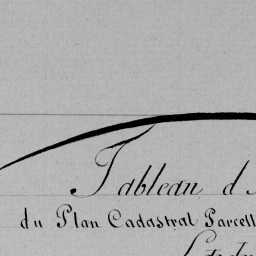 Tableau d
du Plan Cadastral Parcell